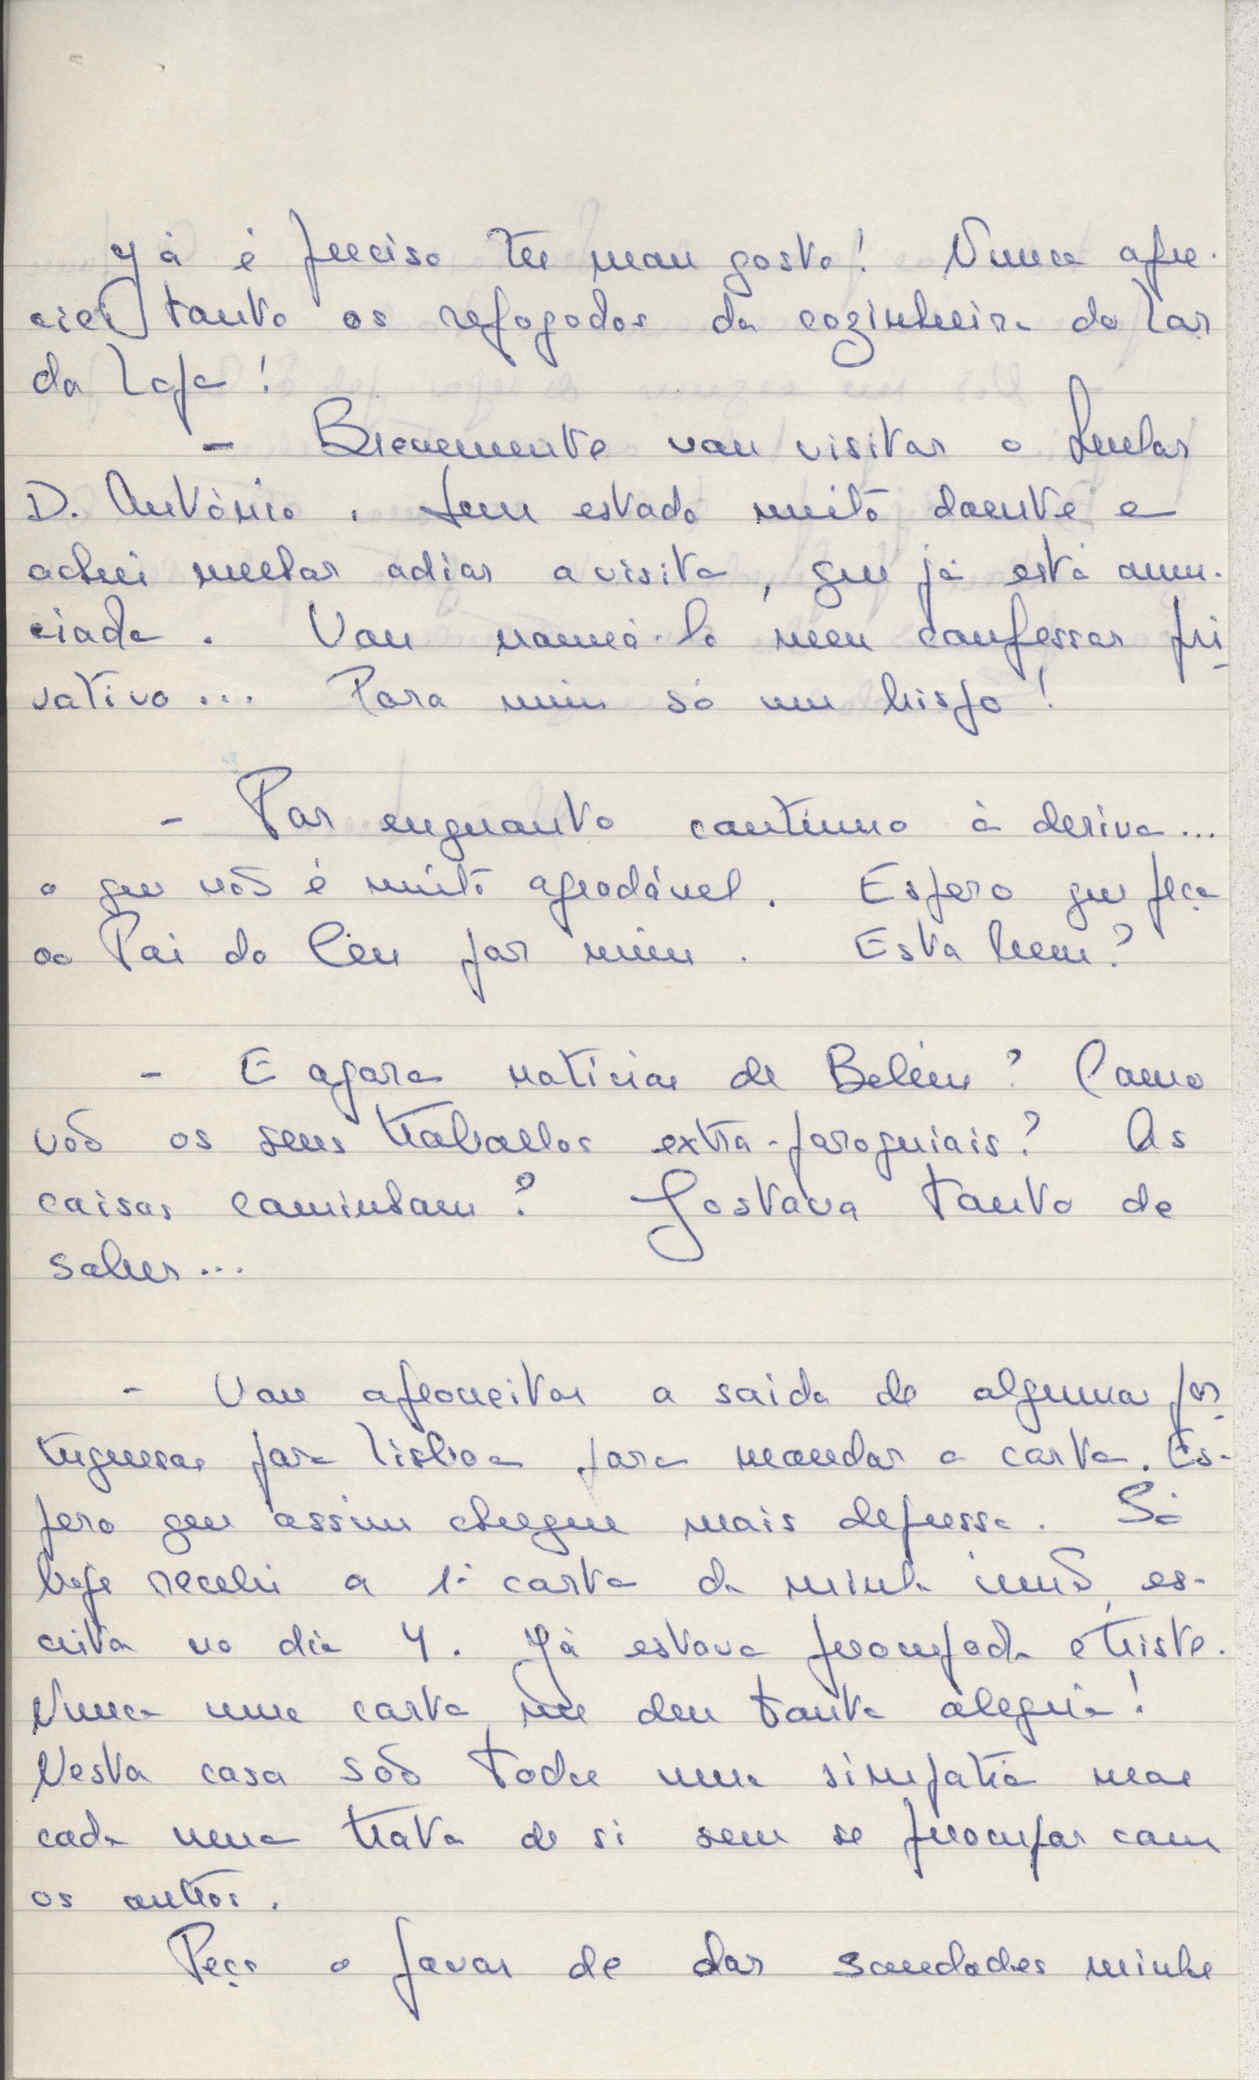 Já é preciso ter mau gosto! Nunca apre-
ciei tanto os refogados da cozinheira do Lar
da Lapa!
- Brevemente vou visitar o Senhor
D. António. Tem estado muito doente e
achei melhor adiar a visita, que já está anun-
ciada. Vou nomeá-lo meu confessor pri-
vativo... Para mim só um bispo!
- Por enquanto continuo à deriva...
o que não é muito agradável. Espero que peça
ao Pai do Céu por mim. Está bem?
- E agora notícias de Belém? Como
vão os seus trabalhos extra-paroquiais? As
coisas caminham? Gostava tanto de
saber...
- Vou aproveitar a saída de algumas por-
tuguesas para Lisboa para mandar a carta. Es-
pero que assim chegue mais depressa. Só
hoje recebi a 1ª carta da minha irmã, es-
crita no dia 4. Já estava preocupada e triste.
Nunca uma carta me deu tanta alegria!
Nesta casa são todas uma simpatia mas
cada uma trata de si sem se preocupar com
os outros.
Peço o favor de dar saudades minhas